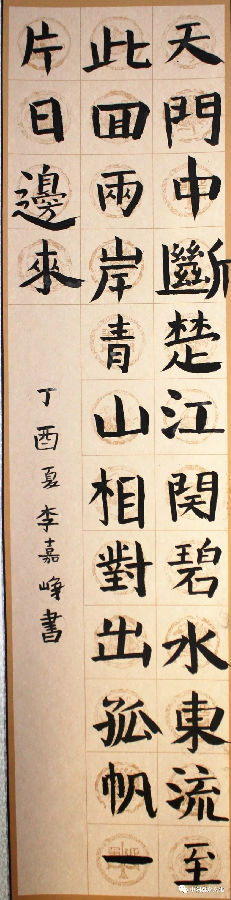 天門中斷楚江開碧水東流至
此回兩岸青山相對出孤帆一
片日邊來
丁酉夏李嘉峥書